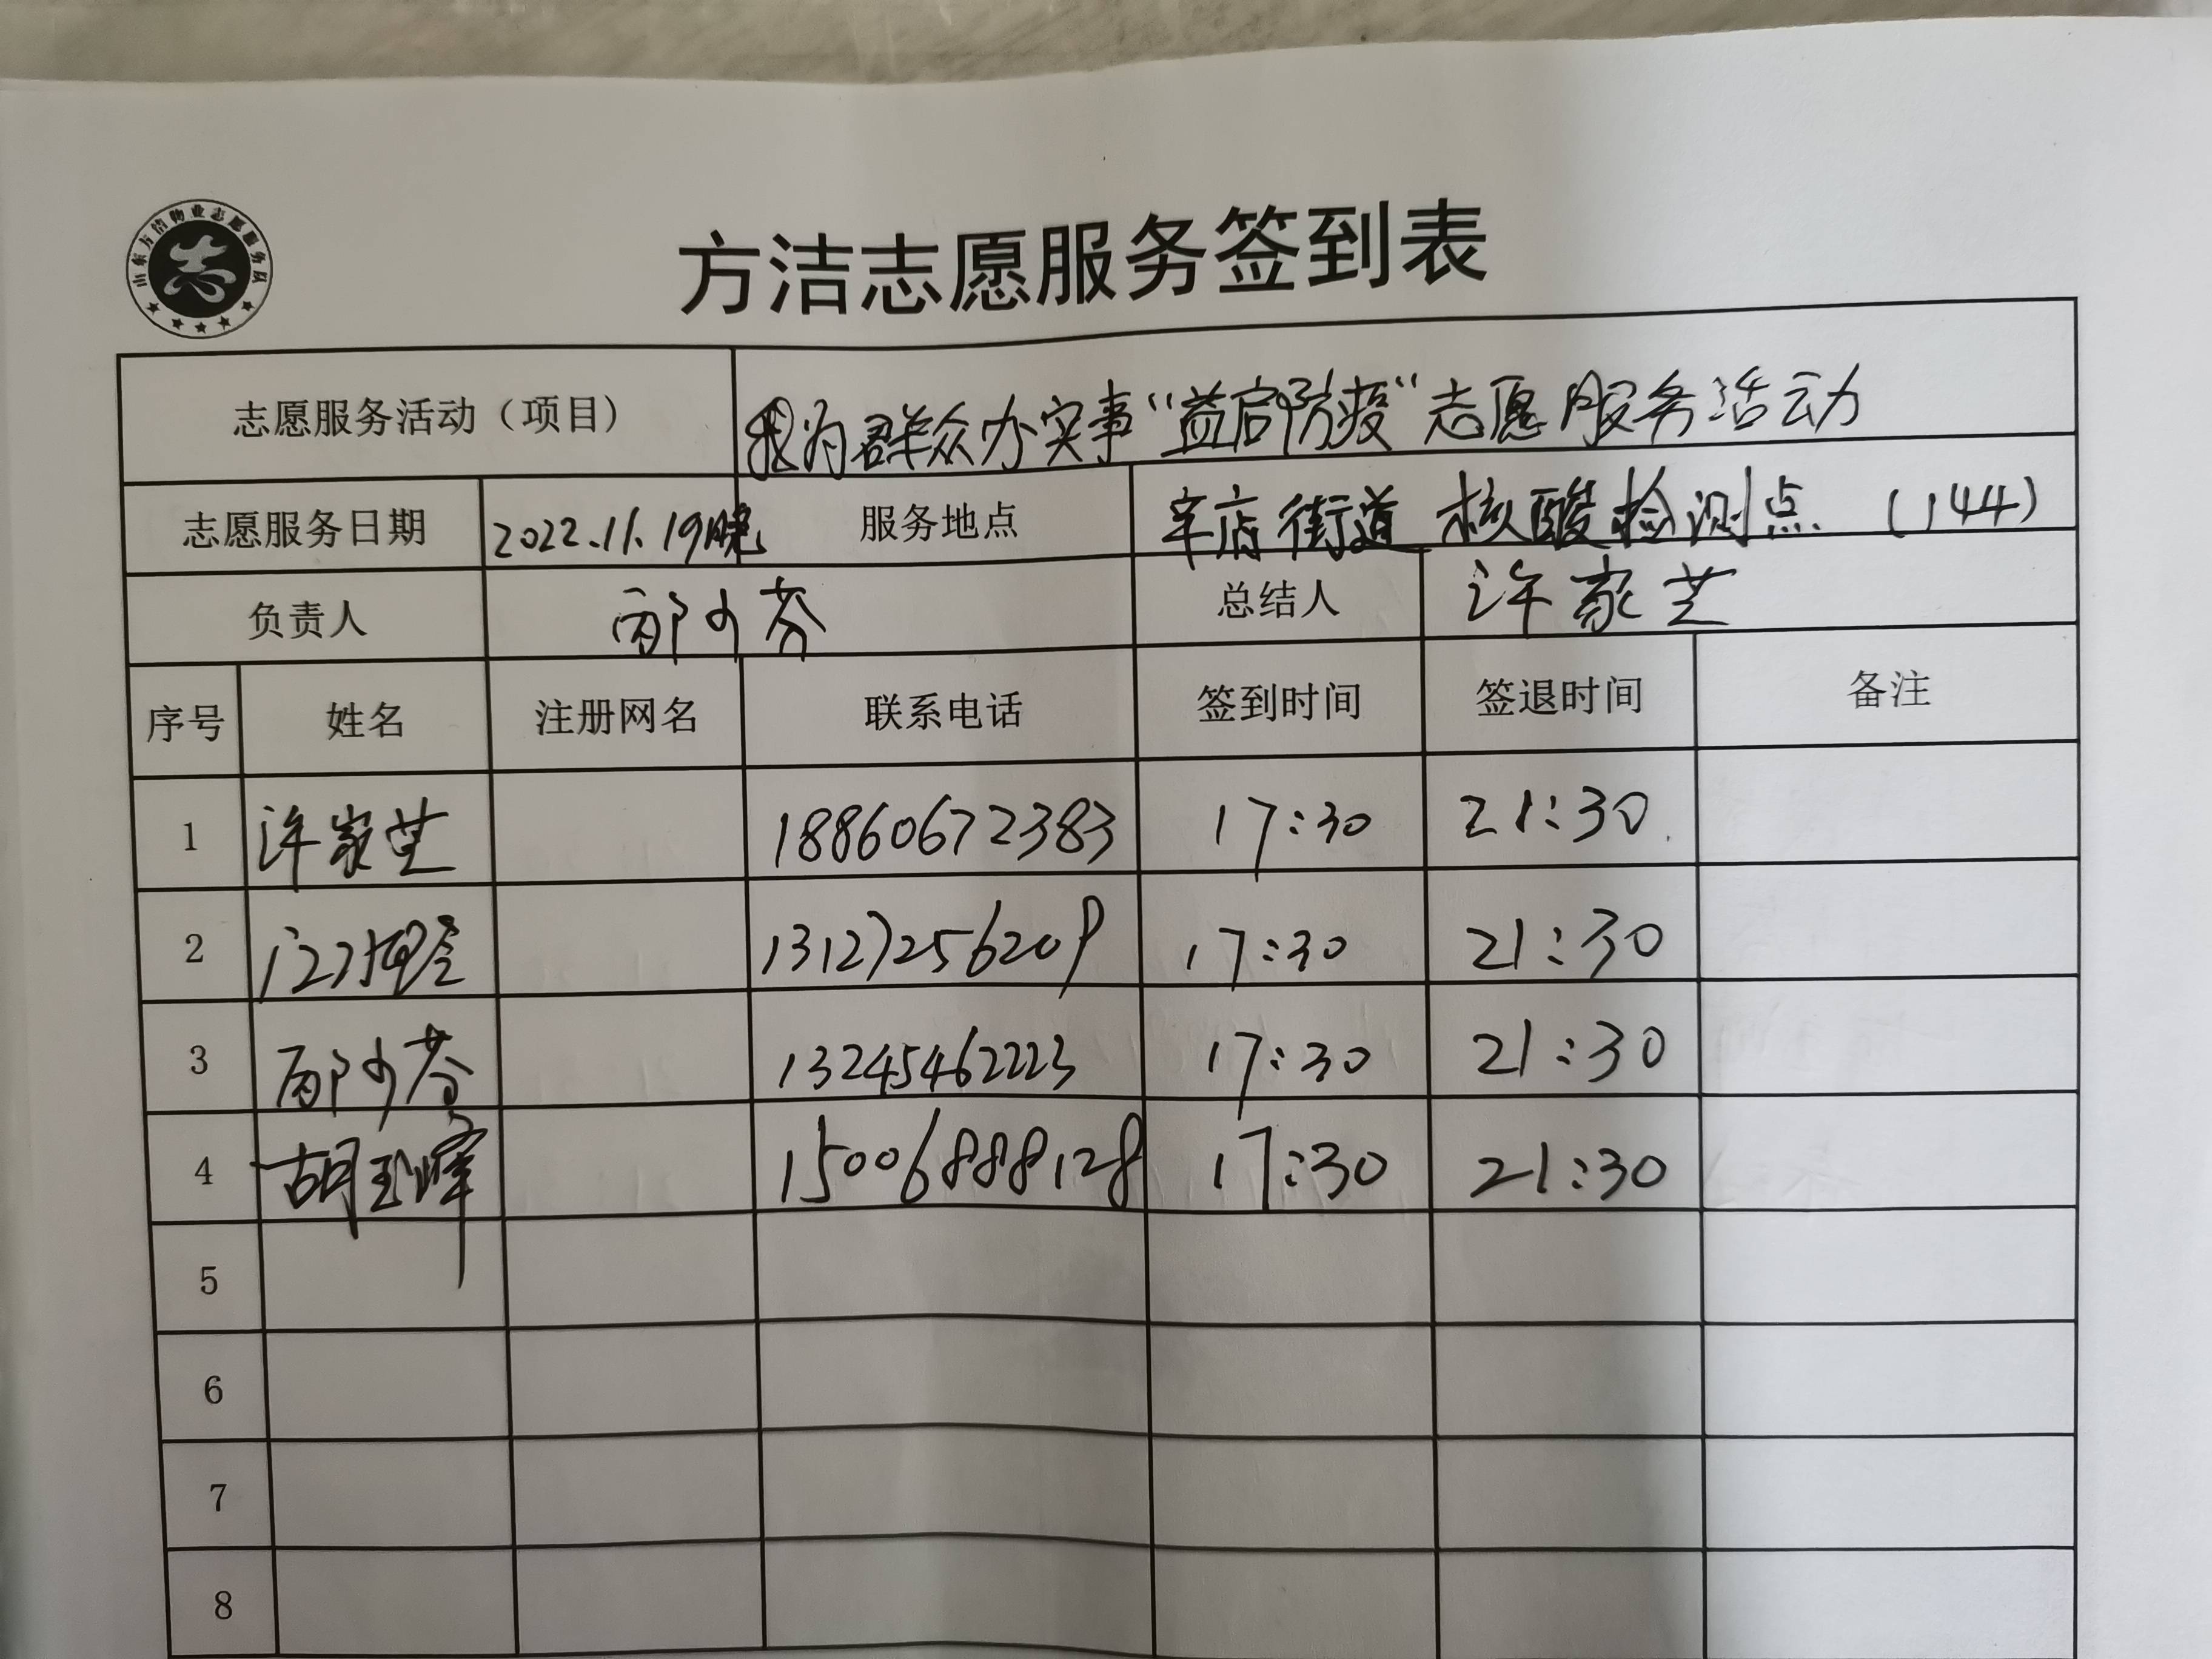 山东方洁物业志愿服务队
志
方洁志愿服务签到表
志愿服务活动（项目） 我为群众办实事“益启防疫”志愿服务活动
志愿服务日期 2022.11.19晚 服务地点 辛店街道 核酸检测点（144）
负责人 邴少芬 总结人 许家芝
序号 姓名 注册网名 联系电话 签到时间 签退时间 备注
1 许家芝 18860672383 17:30 21:30
2 13127256209 17:30 21:30
3 邴少芬 13245462223 17:30 21:30
4 胡玉峰 15006888128 17:30 21:30
5
6
7
8